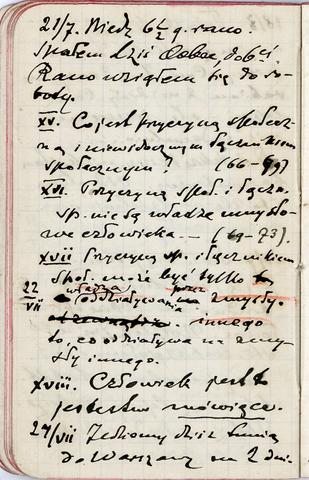 21/7. Niedz 6½ g. rano.
Spałem dziś dobrze, do 6ej.
Rano wziąłem się do ro-
boty.
XV. Co jest przyczyną społecz-
ną i niewidocznym łącznikiem
społecznym? (66-69)
XVI. Przyczyną społ. i łączn.
sp. nie są władze umysło-
we człowieka. — (69-73).
XVII Przyczyną sp. i łącznikiem
społ. może być tylko to
22/VII władza przez
oddziaływania na zmysły
innego
to, co oddziaływa na zmy-
sły innego.
XVIII. Człowiek jest to
jestestwo mówiące.
24/VII Jedziemy dziś z
do Warszawy na 2 dni.